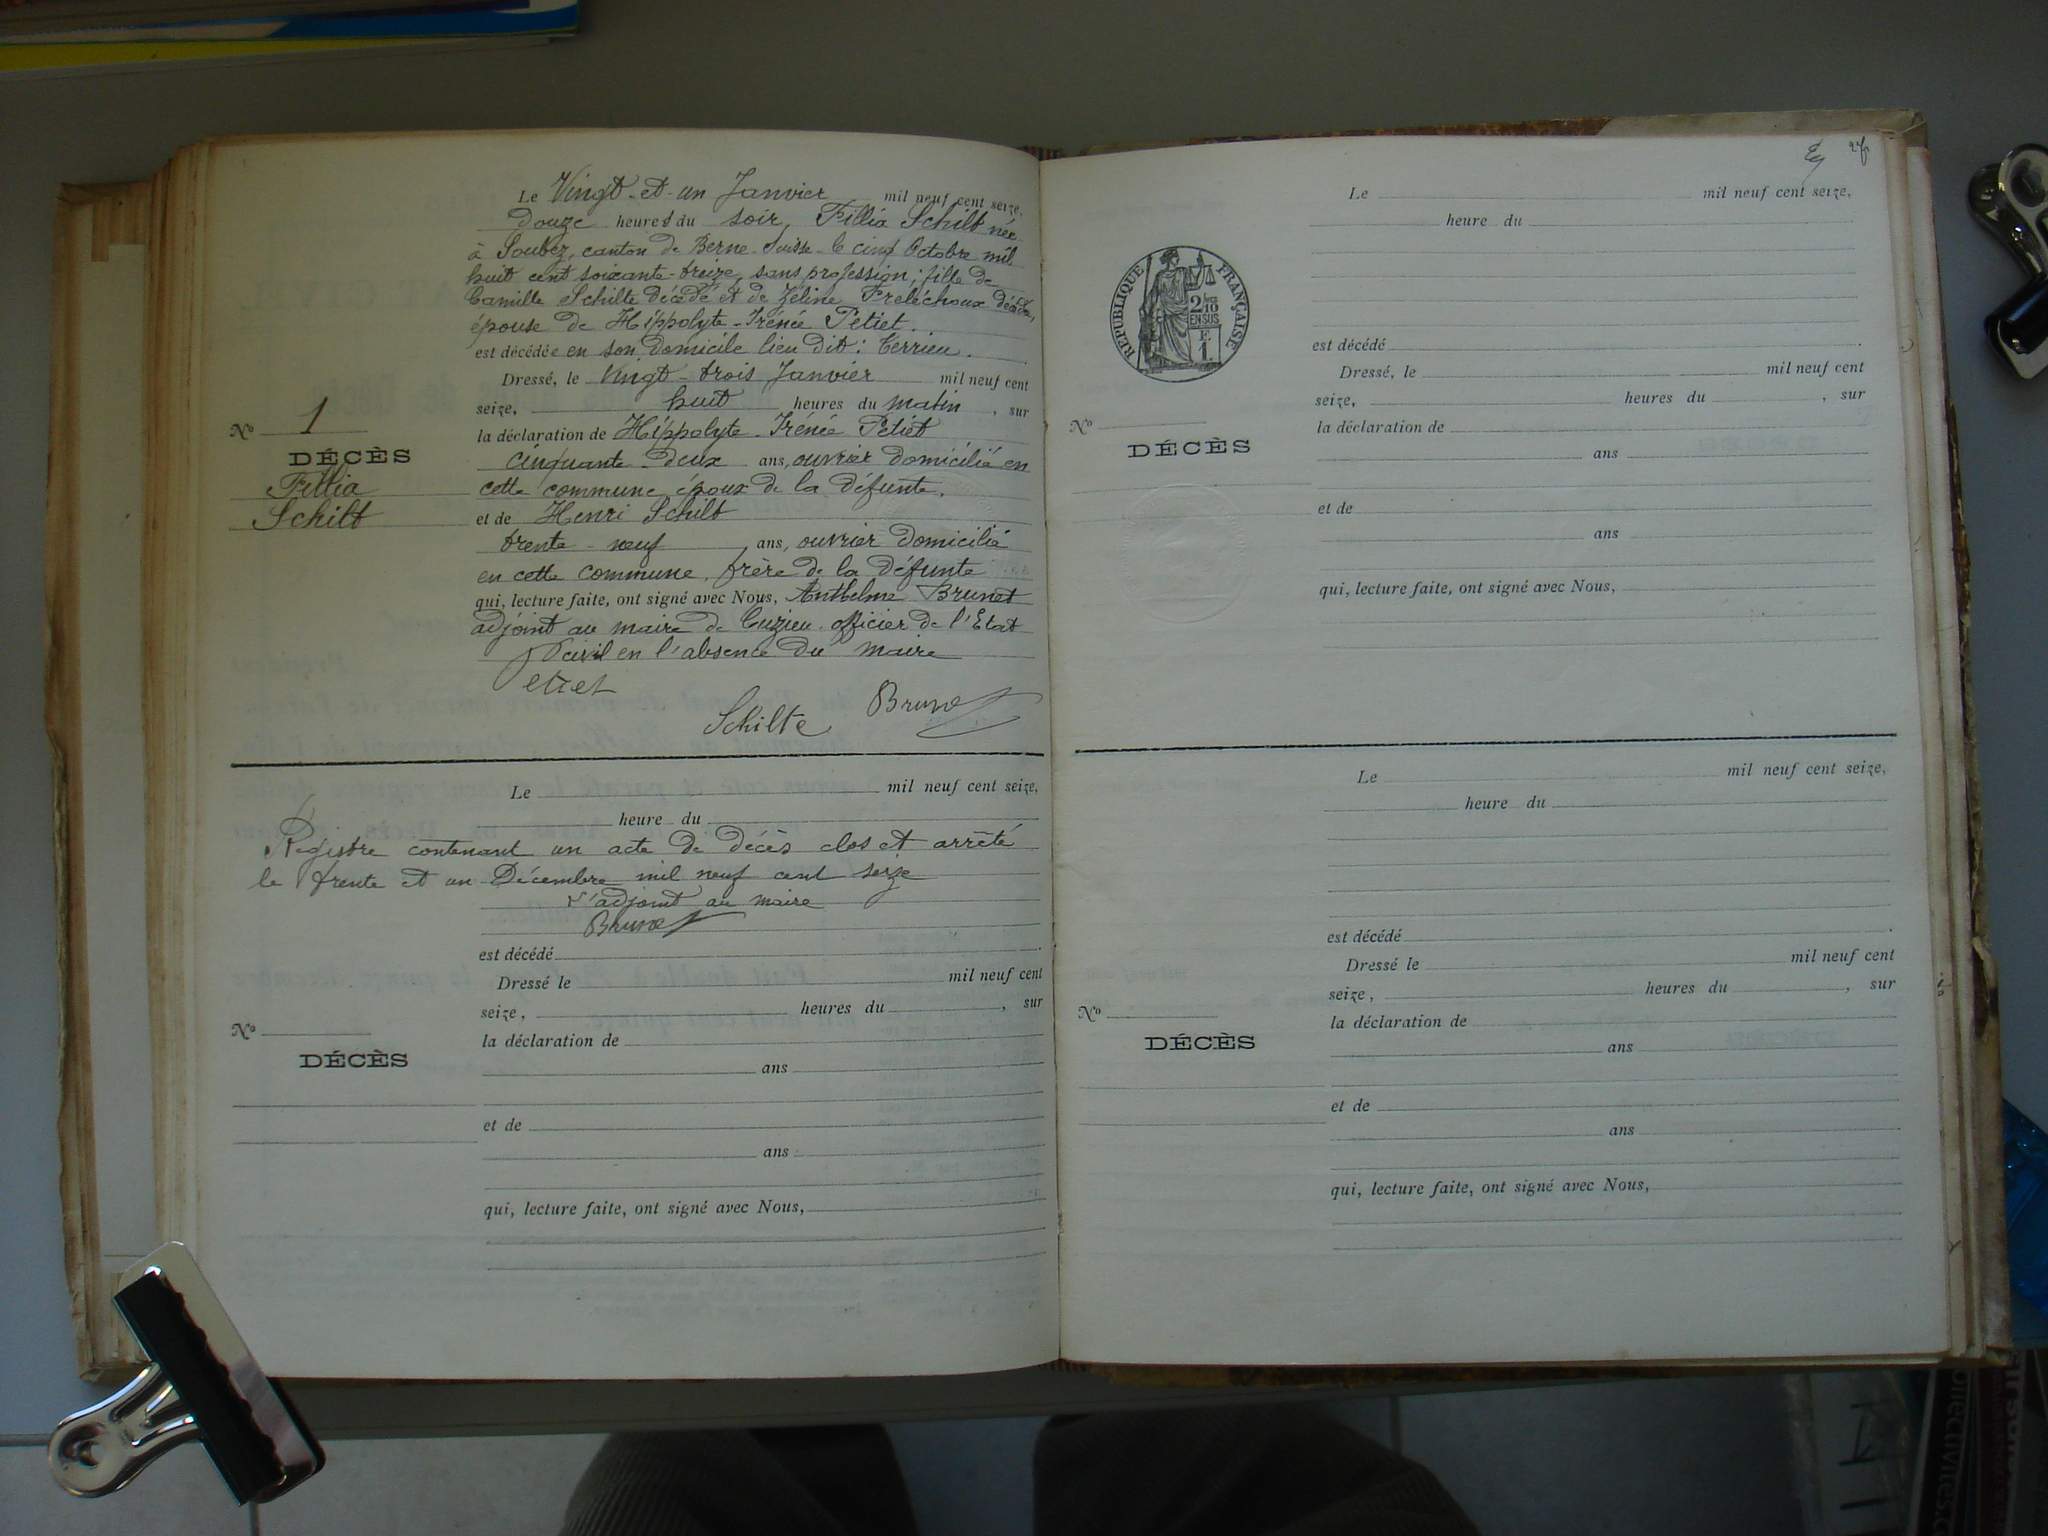 Le Vingt-et-un Janvier mil neuf cent seize,
douze heures du soir, Fillia Schilt née
à Soubez, canton de Berne-Suisse-le cinq Octobre mil
huit cent soixante-treize, sans profession; fille de
Camille Schilte décédé et de Zéline Freléchoux décédée,
épouse de Hippolyte-Irénée Petiet.
est décédée en son domicile lieu dit: Cerrieu.
Dressé, le Vingt-trois Janvier mil neuf cent
seize, huit heures du matin, sur
la déclaration de Hippolyte-Irénée Petiet
cinquante-deux ans, ouvrier domicilié en
cette commune, époux de la défunte.
et de Henri Schilt
trente-neuf ans, ouvrier domicilié
en cette commune, frère de la défunte
qui, lecture faite, ont signé avec Nous, Anthelme Brunet
adjoint au maire de Cuzieu, officier de l'Etat
civil en l'absence du maire
Petiet
Schilte Brunet
No 1
DÉCÈS
Fillia
Schilt
Le mil neuf cent seize,
heure du
Registre contenant un acte de décès clos et arrêté
le trente et un Décembre mil neuf cent seize
L'adjoint au maire
Brunet
est décédé
Dressé le mil neuf cent
seize, heures du , sur
la déclaration de
ans
et de
ans
qui, lecture faite, ont signé avec Nous,
No
DÉCÈS
Le mil neuf cent seize,
heure du
est décédé
Dressé, le mil neuf cent
seize, heures du , sur
la déclaration de
ans
et de
ans
qui, lecture faite, ont signé avec Nous,
RÉPUBLIQUE FRANÇAISE
2/10
EN SUS
F.
1.
No
DÉCÈS
Le mil neuf cent seize,
heure du
est décédé
Dressé le mil neuf cent
seize, heures du , sur
la déclaration de
ans
et de
ans
qui, lecture faite, ont signé avec Nous,
No
DÉCÈS